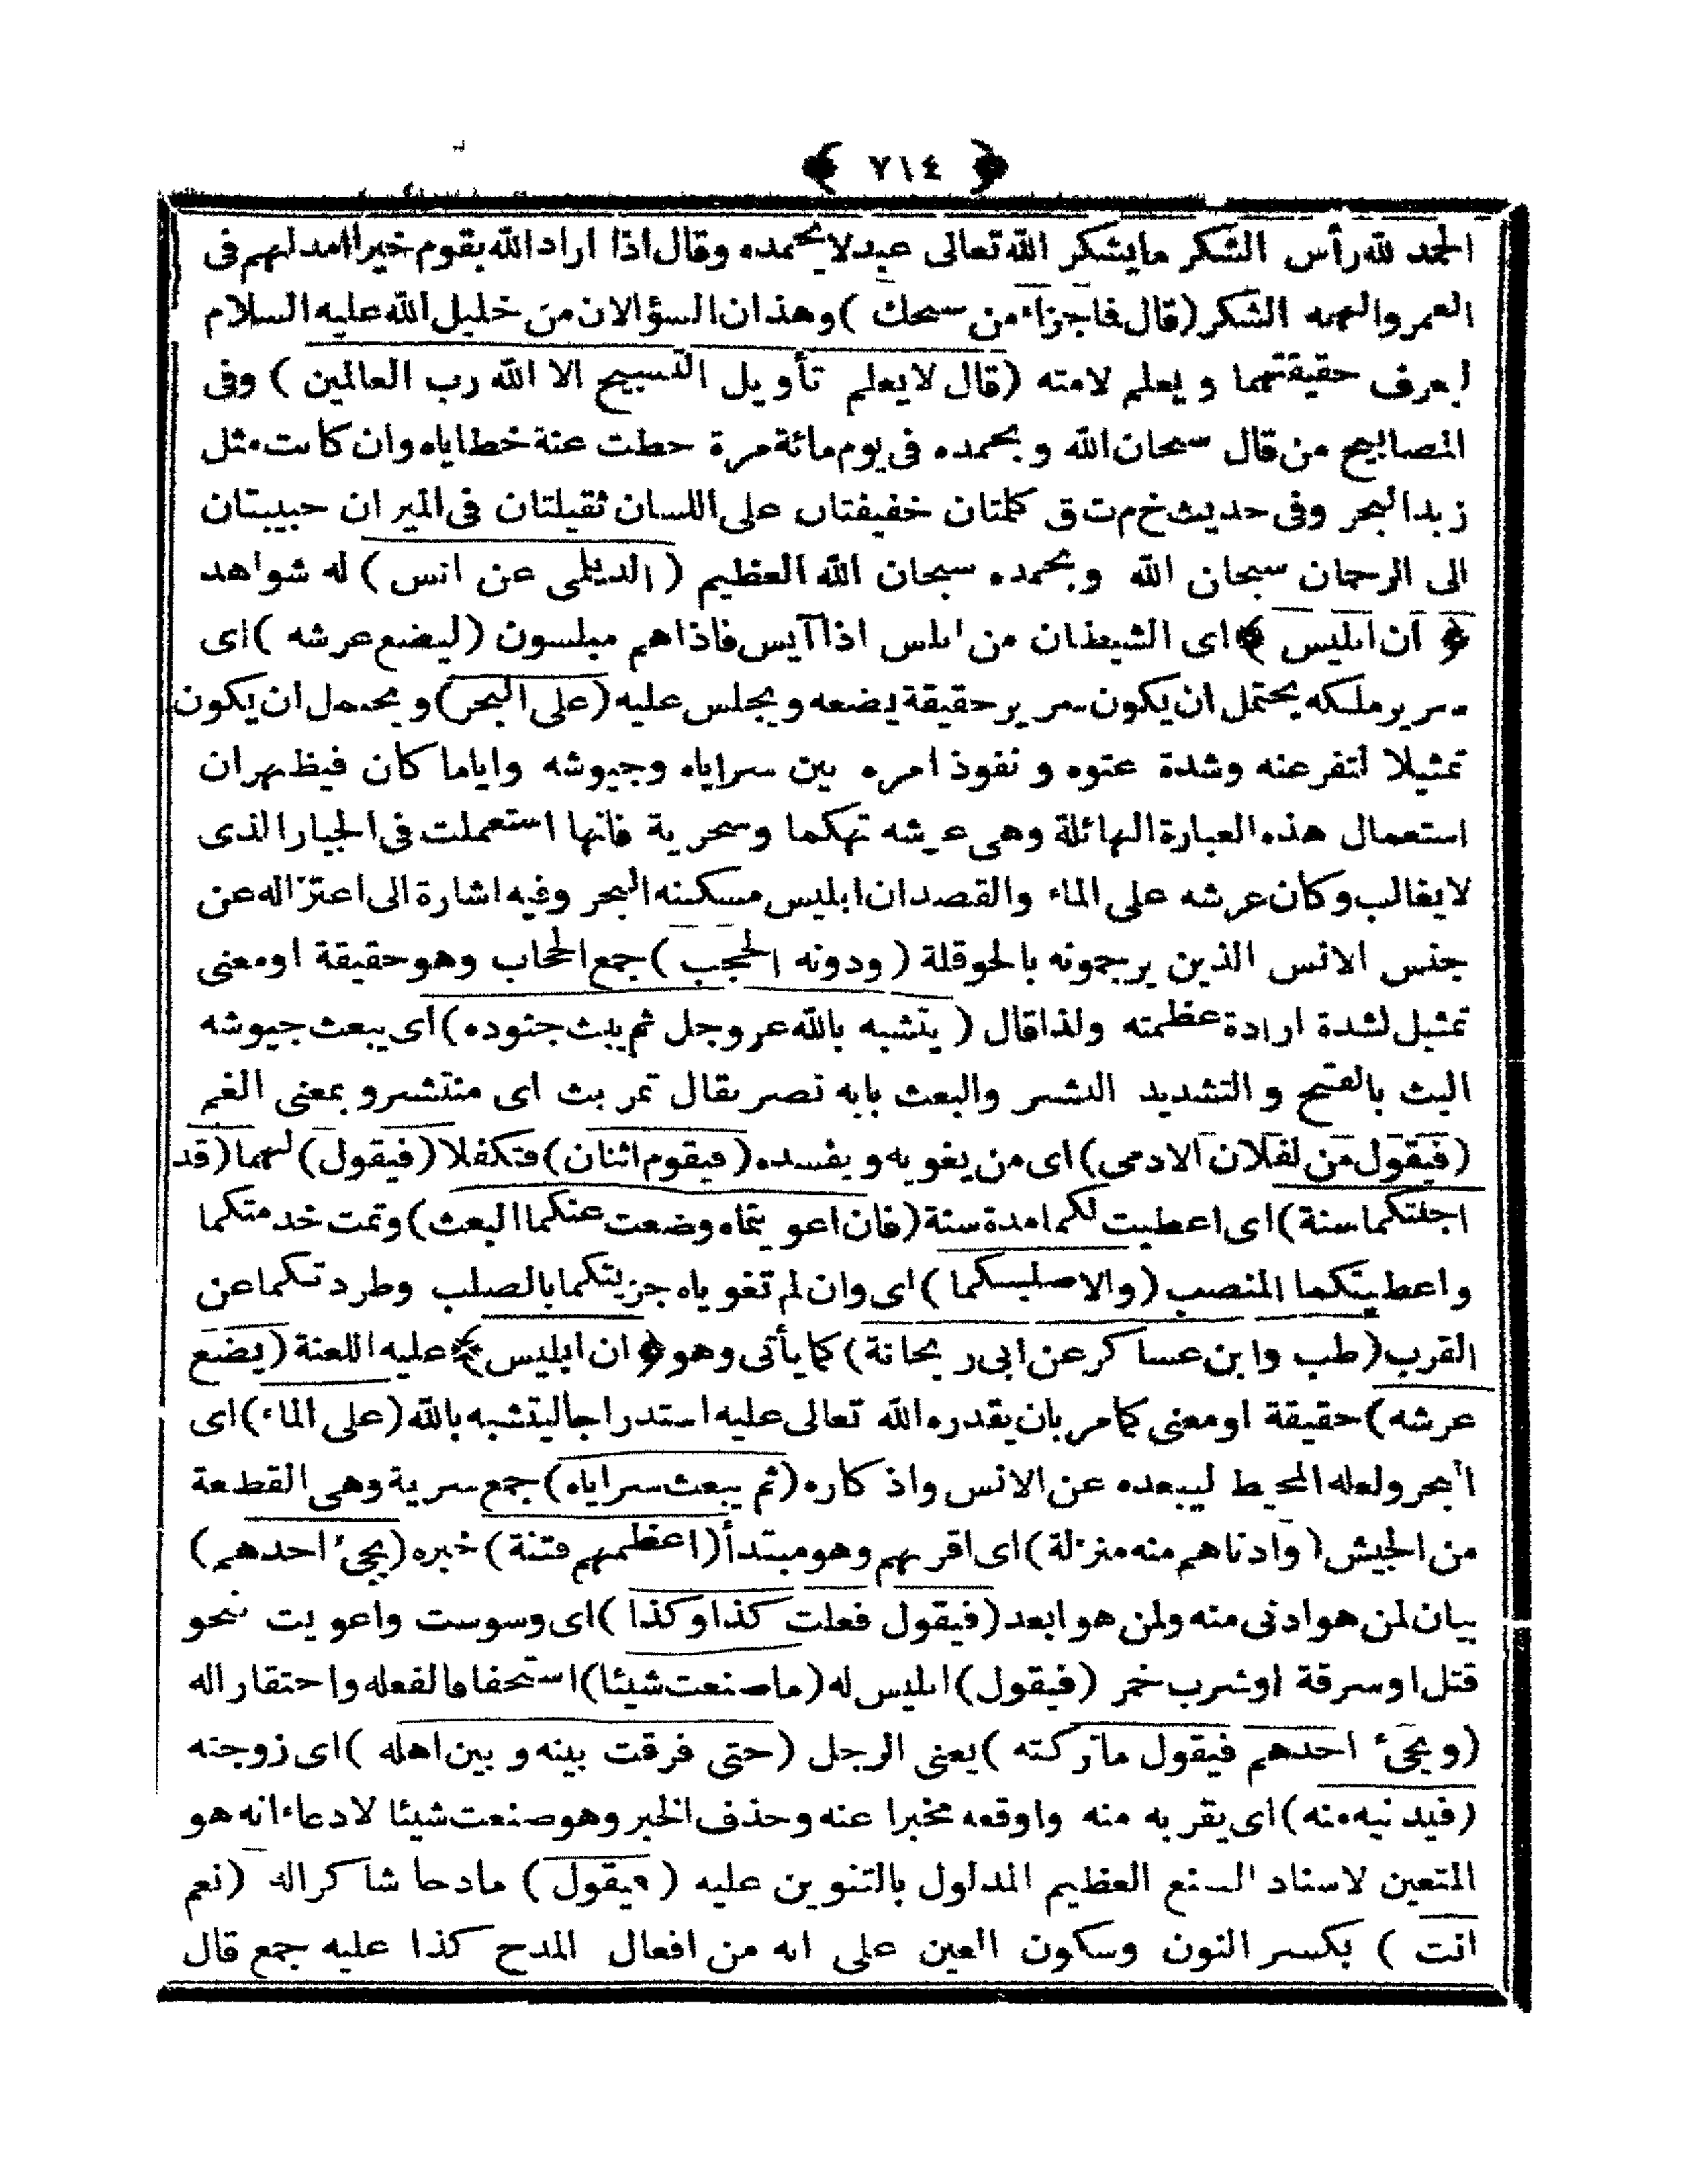 ﴿ ٧١٤ ﴾
الحمد لله رأس الشكر مايشكر الله تعالى عبد لا يحمده وقال اذا اراد الله بقوم خيرا امد لهم فى
العمر والهمه الشكر (قال فاجزاء من سبحك) وهذان السؤالان من خليل الله عليه السلام
ليعرف حقيقتهما ويعلم لامته (قال لا يعلم تأويل التسبيح الا الله رب العالمين) وفى
المصابيح من قال سبحان الله وبحمده فى يوم مائة مرة حطت عنة خطاياه وان كانت مثل
زبد البحر وفى حديث خ م ت ق كلمتان خفيفتان على اللسان ثقيلتان فى الميزان حبيبتان
الى الرحمان سبحان الله وبحمده سبحان الله العظيم (الديلمى عن انس) له شواهد
﴿ ان ابليس ﴾ اى الشيطان من ابلس اذا آيس فاذاهم مبلسون (ليضع عرشه) اى
سرير ملكه يحتمل ان يكون سرير حقيقة يضعه ويجلس عليه (على البحر) ويحتمل ان يكون
تمثيلا لتفرعنه وشدة عتوه ونفوذ امره بين سراياه وجيوشه واياما كان فيظهر ان
استعمال هذه العبارة الهائلة وهى عرشه تهكما وسخرية فانها استعملت فى الجبار الذى
لا يغالب وكان عرشه على الماء والقصد ان ابليس مسكنه البحر وفيه اشارة الى اعتزاله عن
جنس الانس الذين يرجمونه بالحوقلة (ودونه الحجب) جمع الحجاب وهو حقيقة او معنى
تمثيل لشدة ارادة عظمته ولذا قال (يتشبه بالله عز وجل ثم يبث جنوده) اى يبعث جيوشه
البث بالفتح والتشديد النشر والبعث بابه نصر يقال تمر بث اى منتشر وبمعنى الغم
(فيقول من لفلان الادمى) اى من يغويه ويفسده (فيقوم اثنان) فتكفلا (فيقول) لهما (قد
اجلتكما سنة) اى اعطيت لكما مدة سنة (فان اغويتماه وضعت عنكما البعث) وتمت خدمتكما
واعطيتكما المنصب (والا صلبتكما) اى وان لم تغوياه جزيتكما بالصلب وطردتكما عن
القرب (طب وابن عساكر عن ابى ريحانة) كما يأتى وهو ﴿ ان ابليس ﴾ عليه اللعنة (يضع
عرشه) حقيقة او معنى كما مر بان يقدره الله تعالى عليه استدراجا ليتشبه بالله (على الماء) اى
البحر ولعله المحيط ليبعده عن الانس واذكاره (ثم يبعث سراياه) جمع سرية وهى القطعة
من الجيش (وادناهم منه منزلة) اى اقربهم وهو مبتدأ (اعظمهم فتنة) خبره (يجئ احدهم)
بيان لمن هو ادنى منه ولمن هو ابعد (فيقول فعلت كذا وكذا) اى وسوست واغويت نحو
قتل او سرقة او شرب خمر (فيقول) ابليس له (ما صنعت شيئا) استخفافا لفعله واحتقارا له
(ويجئ احدهم فيقول ماتركته) يعنى الرجل (حتى فرقت بينه وبين اهله) اى زوجته
(فيدنيه منه) اى يقربه منه واوقعه مخبرا عنه وحذف الخبر وهو صنعت شيئا لادعاء انه هو
المتعين لاسناد الصنع العظيم المدلول بالتنوين عليه (فيقول) مادحا شاكرا له (نعم
انت) بكسر النون وسكون العين على انه من افعال المدح كذا عليه جمع قال